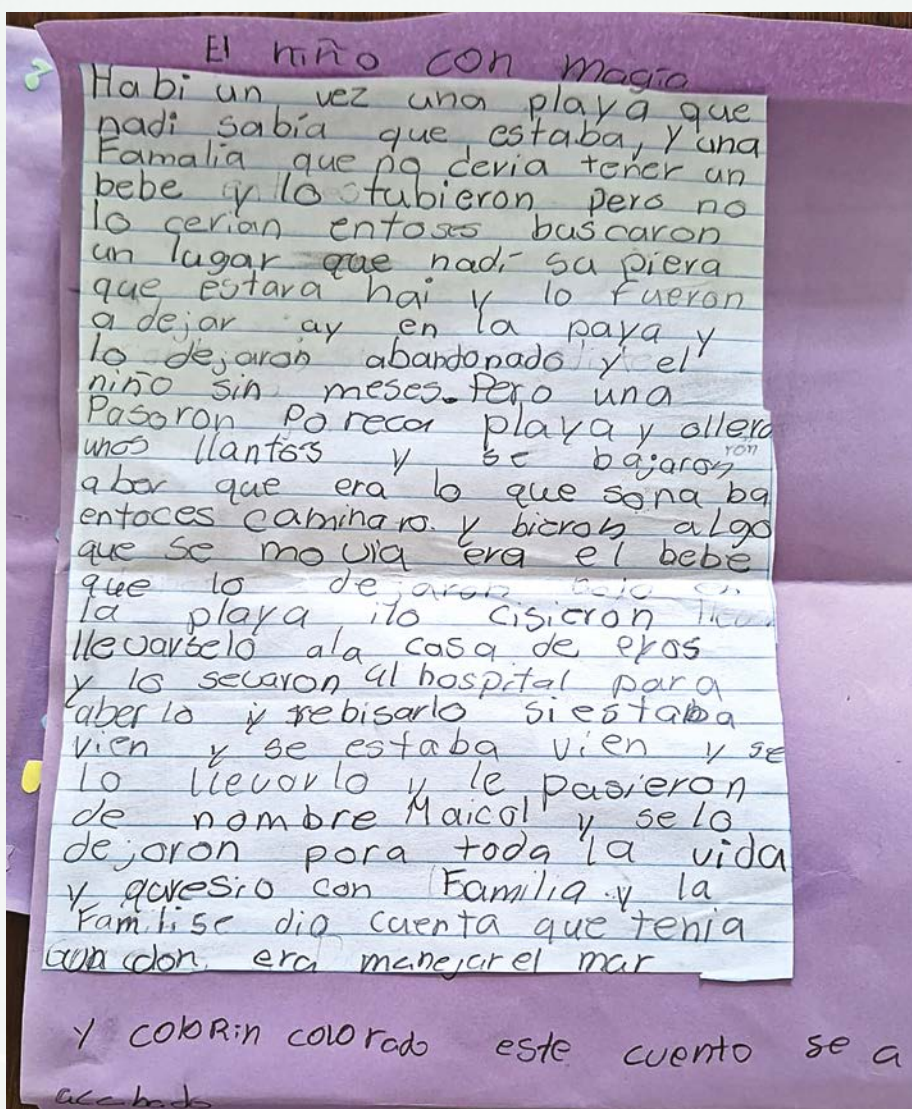 El niño con magia
Habi un vez una playa que
nadi sabía que estaba, y una
Famalia que no devia tener un
bebe y lo tubieron pero no
lo cerian entoses buscaron
un lugar que nadi su piera
que estara hai y lo fueron
a dejar ay en la paya y
lo dejaron abandonado y el
niño sin meses. Pero una
Pasaron Poreca playa y ollero
ron
unos llantos y se bajaron
abor que era lo que sona ba
entoces caminaro. y bieron algo
que se mo via era el bebe
que lo dejaron
la playa ilo cisieron
llevarselo ala casa de eyos
y lo sevaron al hospital para
aberlo y rebisarlo si estaba
vien y se estaba vien y se
lo llevorlo y le pasieron
de nombre Maicol y selo
dejaron para toda la vida
y cresio con Familia y la
Famili se dio cuenta que tenia
don, era manejar el mar
y coloRin colorado este cuento se a
acabado